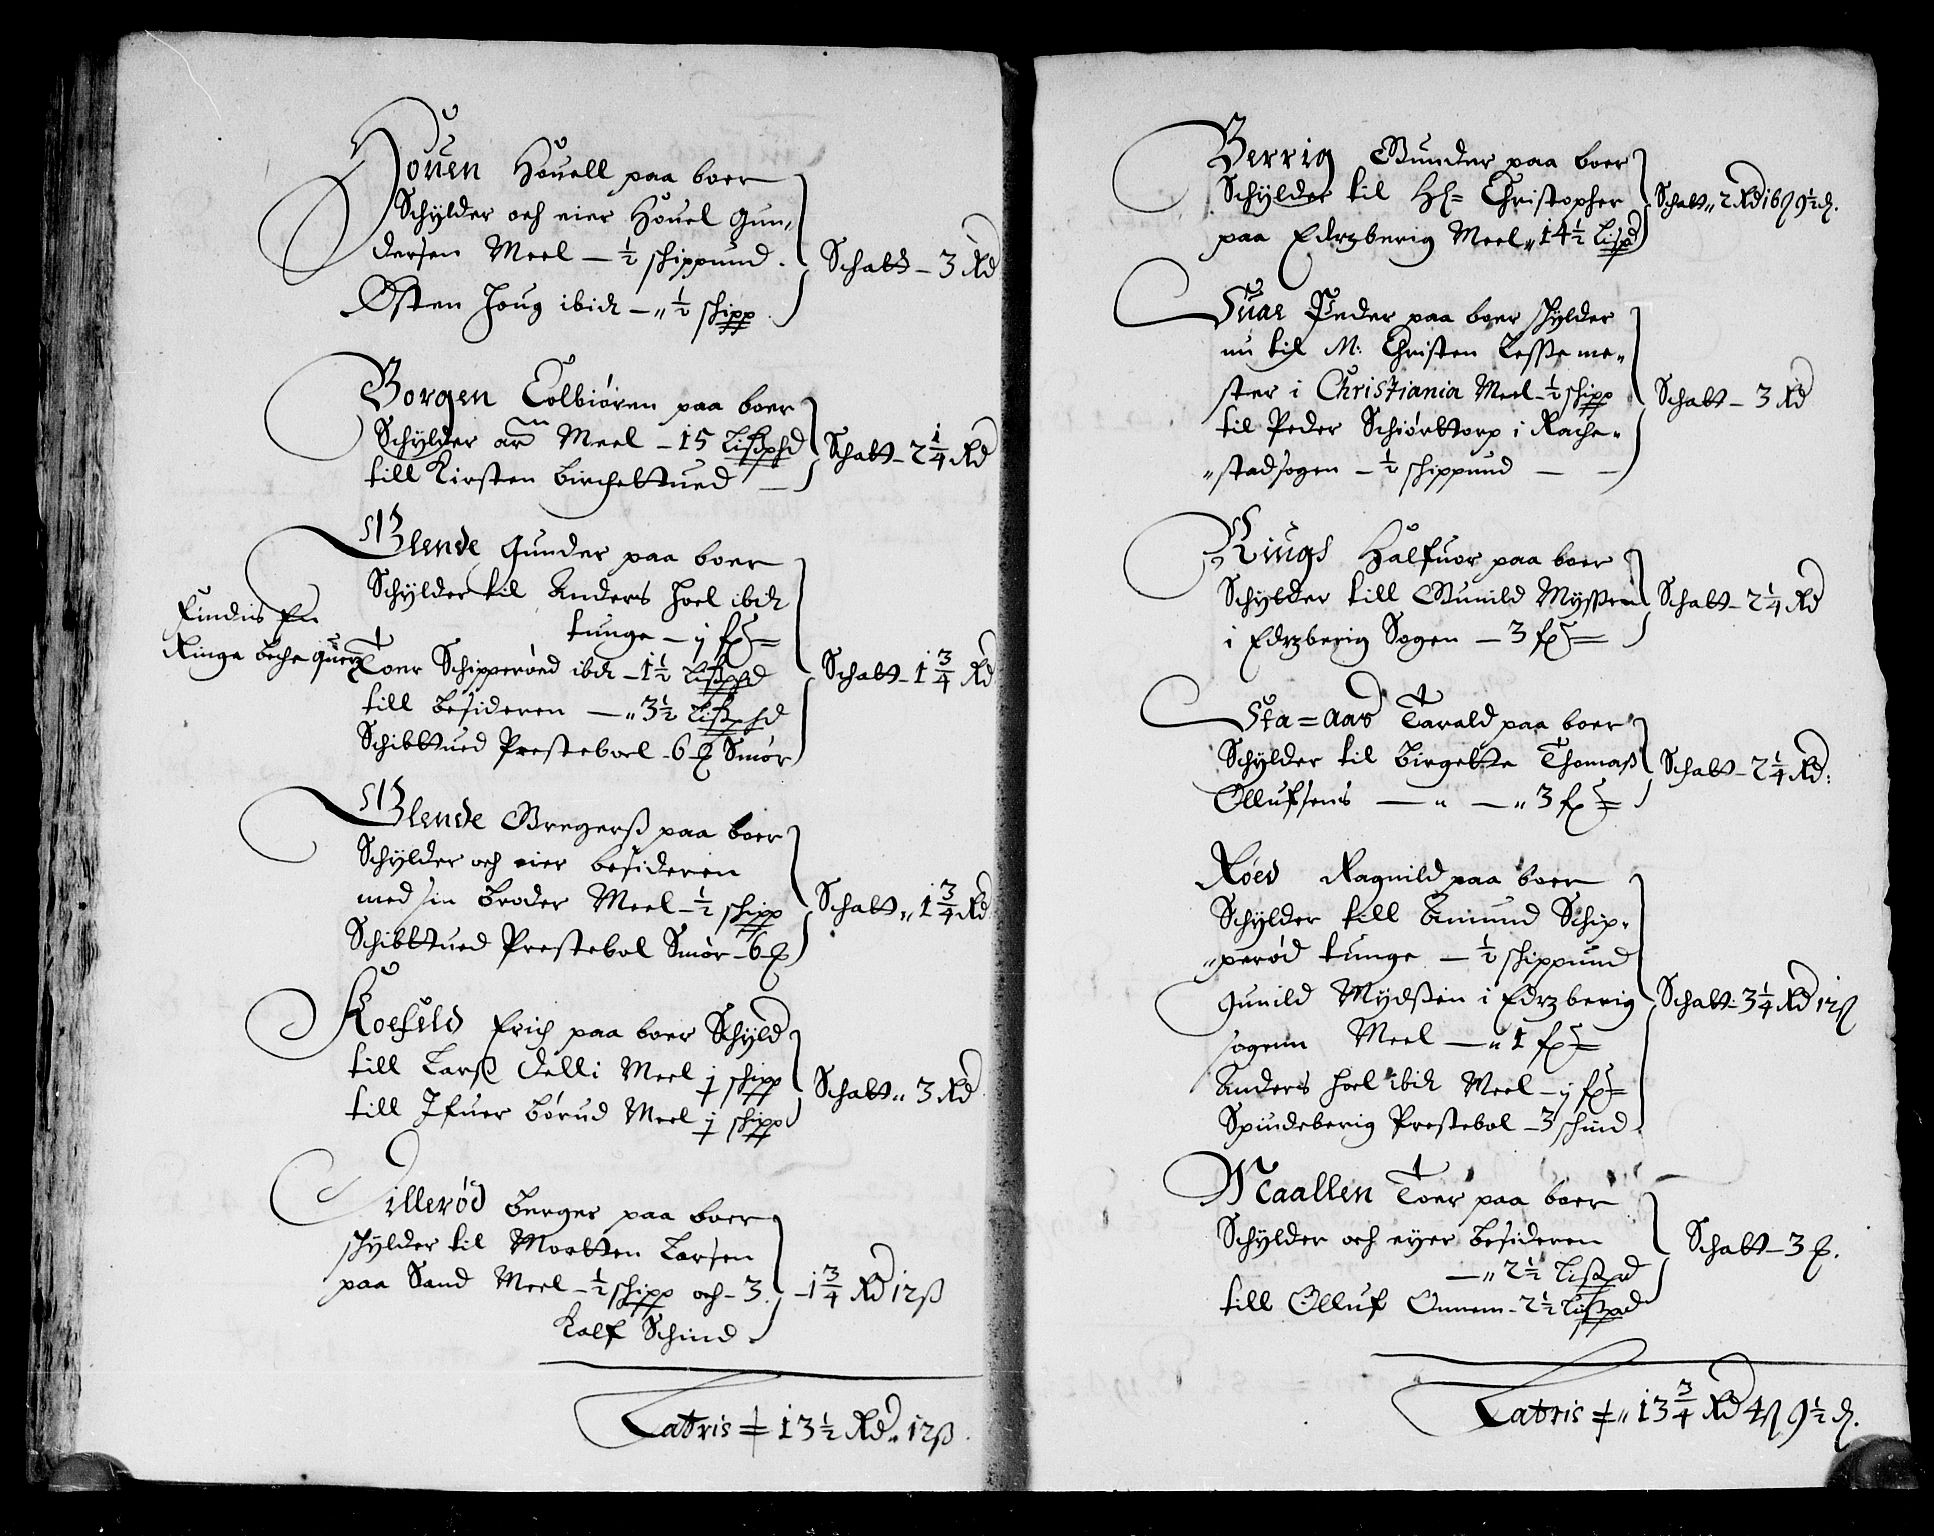 Houen Houell paa boer
Schylder och eier Houel Gun-
dersen Meel – ½ schippund.
Østen Joug ibid – „ ½ schipp
Schatt – 3 Rd
Borgen Tolbiøren paa boer
Schylder Meel – 15 Lißphd
till Kirsten Birchettued –
Schatt – 2 ¼ Rd
Slende Gunder paa boer
Schylder til Anders Hoel ibid
tunge – j fs
Findis En
Ringe Beche quern
Toer Schipperøed ibid – 1½ Lißphd
till Besideren – „ 3½ Lißphd
Schibttued Presteboel – 6 Smør
Schatt – 1 ¾ Rd
Slende Gregerß paa boer
Schylder och eier besideren
med sin Broder Meel – ½ schipp
Schibttued Prestebol Smør – 6
Schatt „ 1 ¾ Rd
Koefeld Erich paa boer Schyld
till Larß Delli Meel j schipp
till Ifuer Børud Meel j schipp
Schatt „ 3 Rd
Tillerød Berger paa boer
schylder til Mortten Larsen
paa Sand Meel – ½ schipp och – 3
Kalf Schind
– 1 ¾ Rd 12 ß
Latris = 13 ½ Rd „ 12 ß
Berrig Gunder paa boer
Schylder til Hr= Christopher
paa Edtzberig Meel „ 14½ Lißpd
Schatt „ 2 Rd 16 ß 9½ d.
Suae Peder paa boer schylder
nu til M: Christen Lesse me-
ster i Christiania Meel – ½ schipp
til Peder Schiørttorp i Rache-
„stad sogen – ½ schippund – –
Schatt – 3 Rd
Rings Halfuor paa boer
Schylder till Gunild Myssen
i Edtzberig Sogen – 3 fs
Schatt – 2 ¼ Rd
Sta=aas Tarald paa boer
Schylder til Birgette Thomaß
Ollufsens – „ – „ 3 fs
Schatt – 2 ¼ Rd:
Røed Ragnild paa boer
Schylder till Amund Schip-
„perød tunge – ½ schippund
Gunild Mydßen i Edtzberig
sogenn Meel – „ 1 fs
Anders Hoel ibid Meel – j fs
Spindeberig Prestebol – 3 schind
Schatt: 3 ¼ Rd 12 ß
Maallen Toer paa boer
Schylder och eyer Besideren
– „ 2½ Lißpd
till Olluf Onnem – 2½ Lißpd
Schatt – 3
Latris = „ 13 ¾ Rd 4 ß 9½ d.